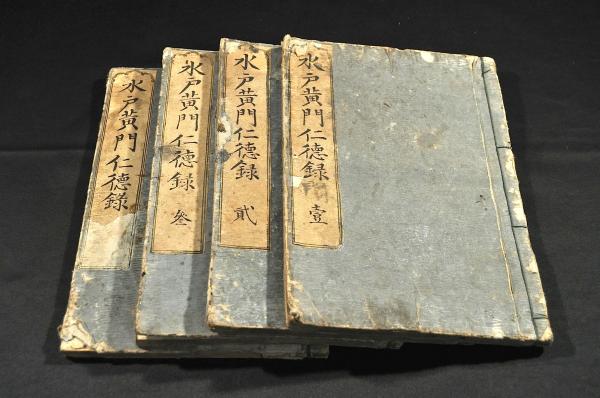 水戸黄門仁徳録 壹
水戸黄門仁徳録 貳
水戸黄門仁徳録 叄
水戸黄門仁徳録